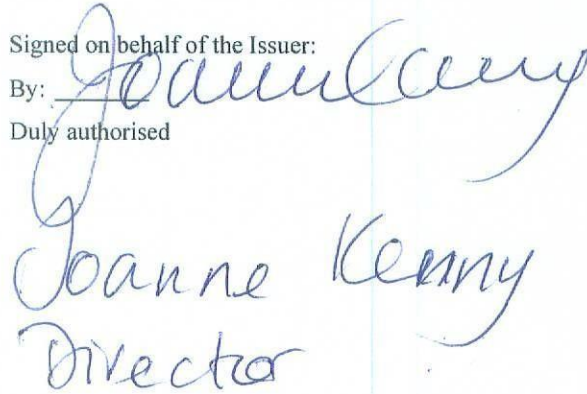 Signed on behalf of the Issuer:
By:
Duly authorised
Joanne Kenny
Director